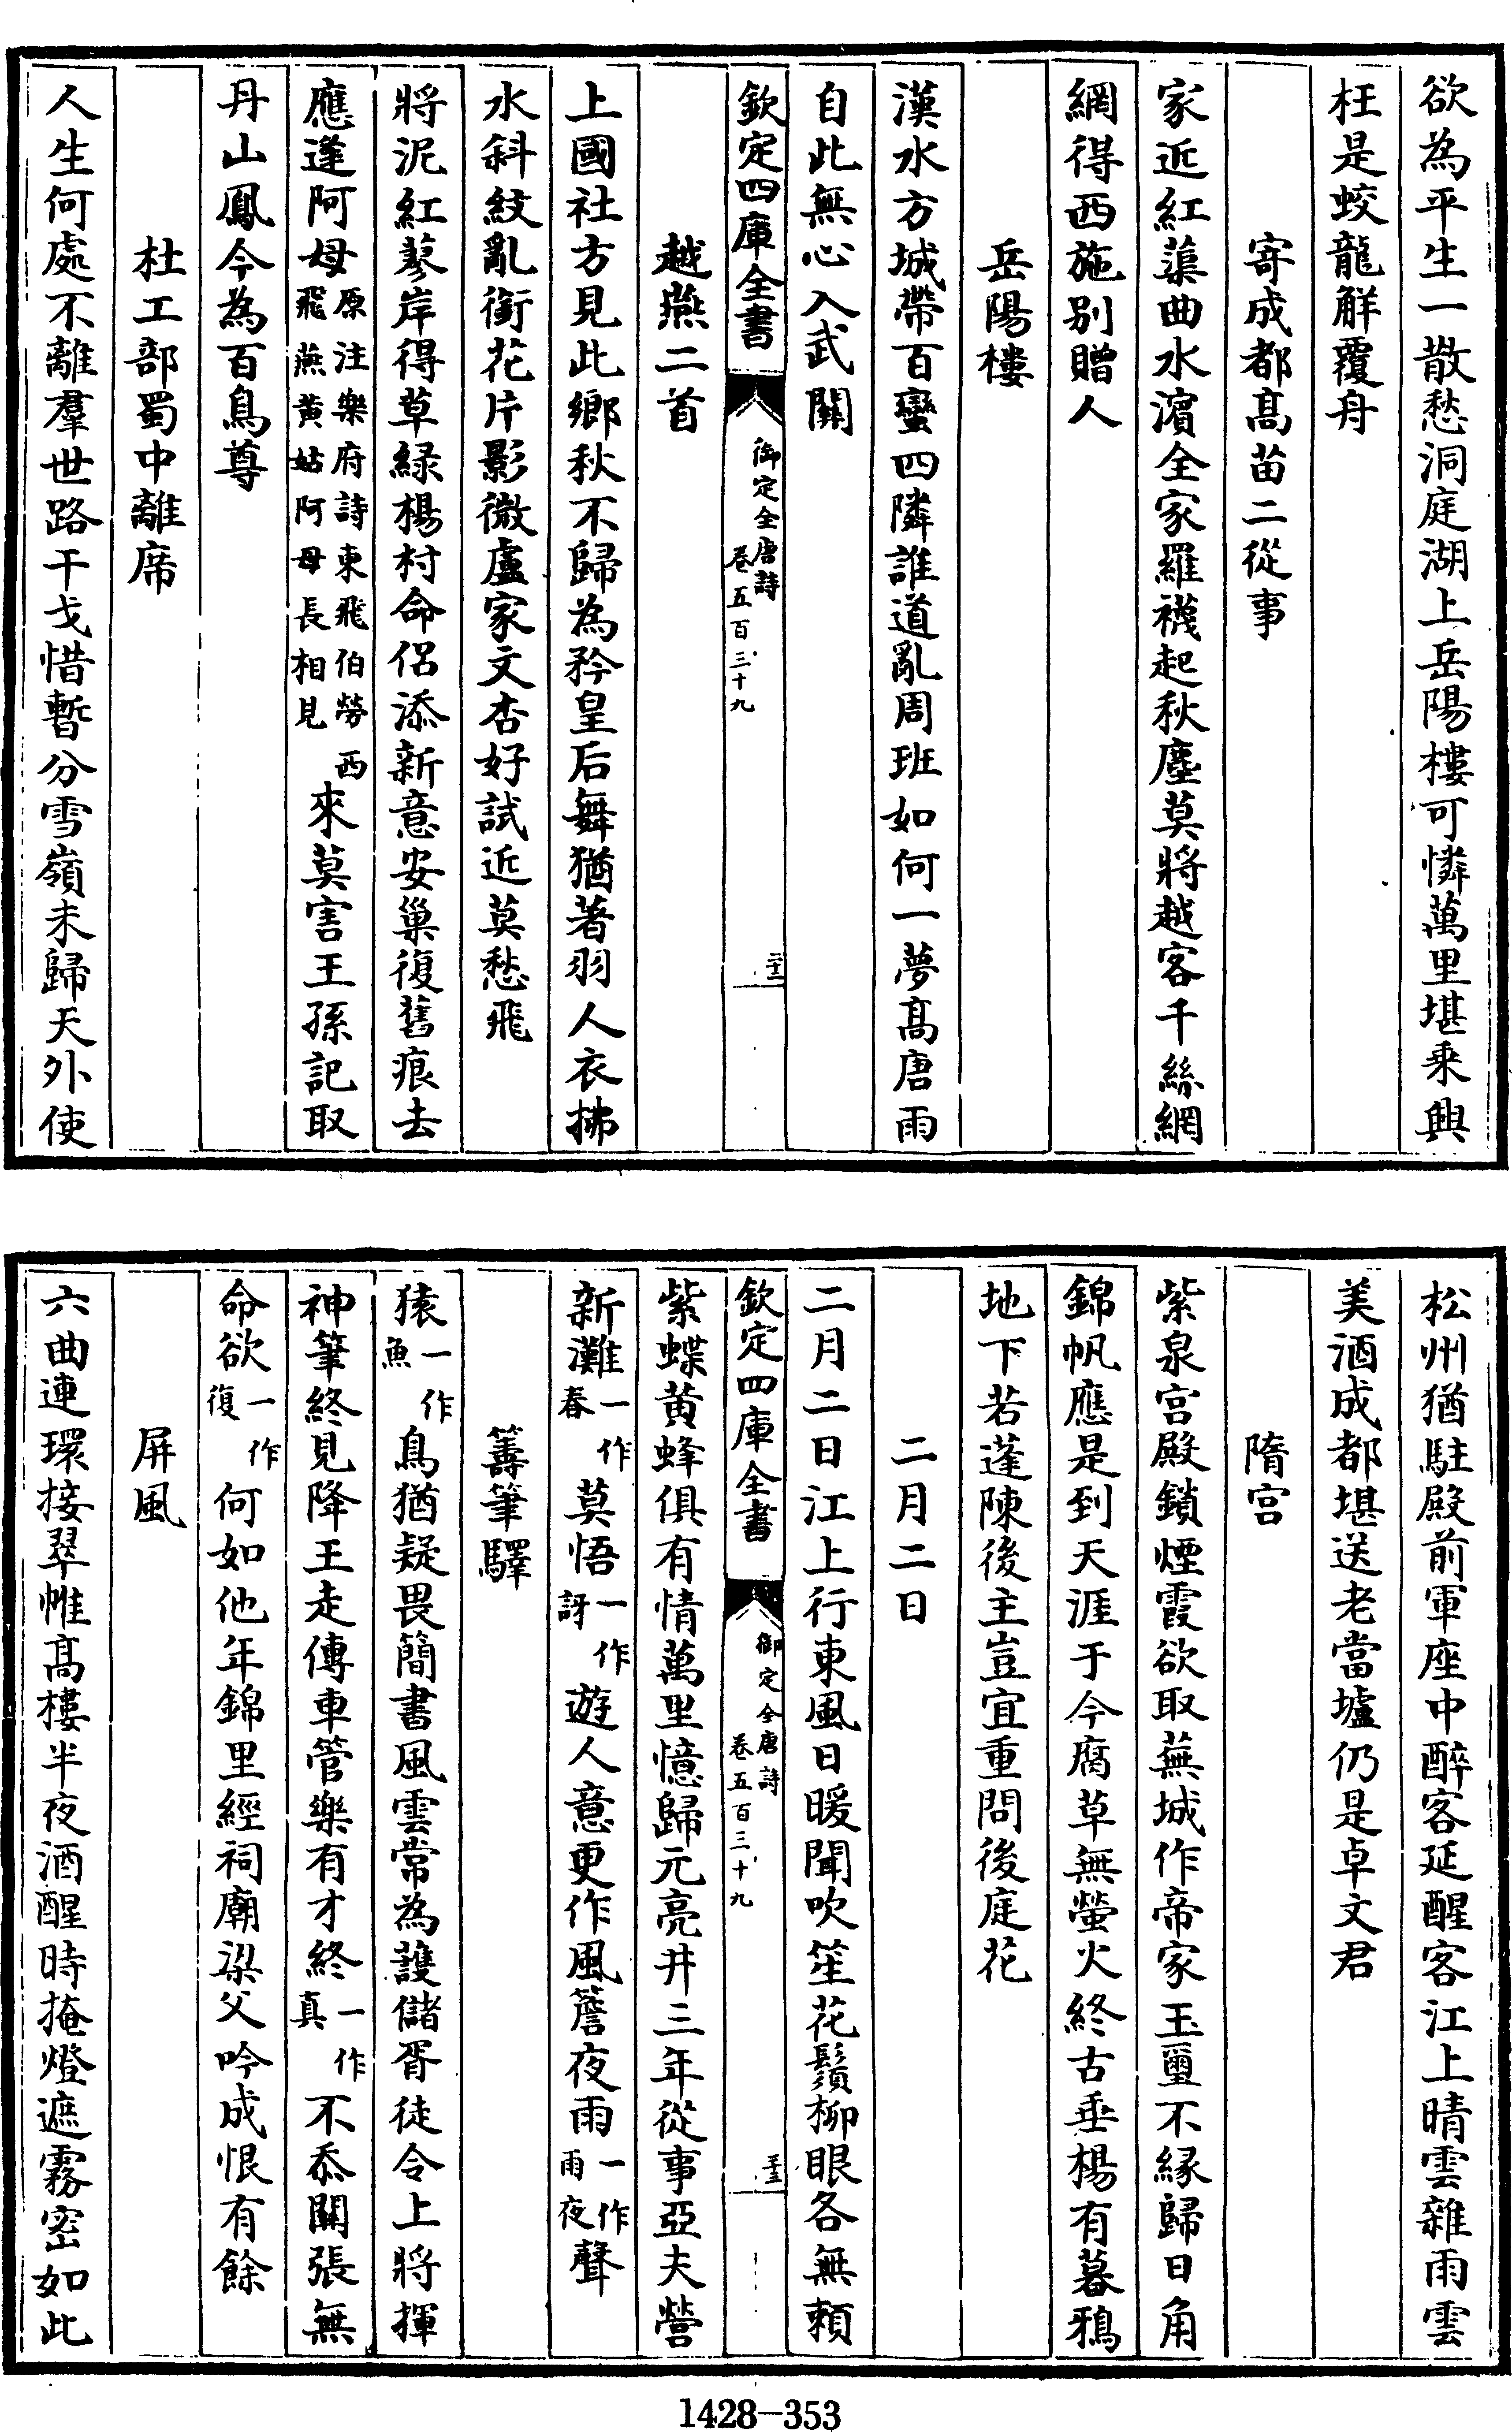 欲為平生一散愁洞庭湖上岳陽樓可憐萬里堪乘興
枉是蛟龍解覆舟
寄成都髙苗二從事
家近紅蕖曲水濵全家羅襪起秋塵莫將越客千絲網
網得西施别贈人
岳陽樓
漢水方城帶百蠻四隣誰道亂周班如何一夢髙唐雨
自此無心入武闗
欽定四庫全書
御定全唐詩
卷五百三十九
二十二
越燕二首
上國社方見此鄉秋不歸為矜皇后舞猶著羽人衣拂
水斜紋亂銜花片影微盧家文杏好試近莫愁飛
將泥紅蓼岸得草緑楊村命侣添新意安巢復舊痕去
應逢阿母原注樂府詩東飛伯勞西飛燕黄姑阿母長相見來莫害王孫記取
丹山鳳今為百鳥尊
杜工部蜀中離席
人生何處不離羣世路干戈惜暫分雪嶺未歸天外使
松州猶駐殿前軍座中醉客延醒客江上晴雲雜雨雲
美酒成都堪送老當壚仍是卓文君
隋宫
紫泉宫殿鎖煙霞欲取蕪城作帝家玉璽不縁歸日角
錦帆應是到天涯于今腐草無螢火終古垂楊有暮鴉
地下若逢陳後主豈宜重問後庭花
二月二日
二月二日江上行東風日暖聞吹笙花鬚柳眼各無賴
欽定四庫全書
御定全唐詩
卷五百三十九
二十三
紫蝶黄蜂俱有情萬里憶歸元亮井三年從事亞夫營
新灘一作春莫悟一作訝遊人意更作風簷夜雨一作雨夜聲
籌筆驛
猿一作魚鳥猶疑畏簡書風雲常為護儲胥徒令上將揮
神筆終見降王走傳車管樂有才終一作真不忝闗張無
命欲一作復何如他年錦里經祠廟梁父吟成恨有餘
屏風
六曲連環接翠帷髙樓半夜酒醒時掩燈遮霧密如此
1428-353